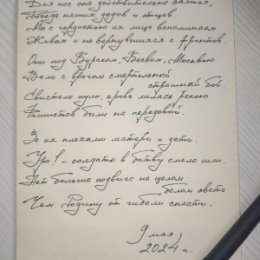 Для нас она действительно святая,
Победа наших дедов и отцов.
Мы с гордостью их лица вспоминаем
Живых и не вернувшихся с фронтов
Они под Курском, Киевом, Москвою
Вели с врагом смертельный
страшный бой.
Свистели пули, кровь лилась рекою
Фашистов били на передовой.
За них плакали матери и дети.
Ура! – солдаты в битву смело шли.
Нет больше подвига на целом
белом свете
Чем Родину от гибели спасти.
9 мая
2024 г.